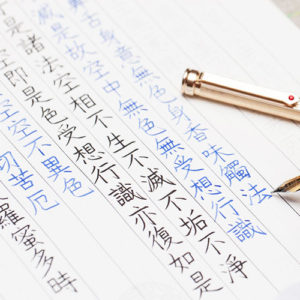 舌身意無色身香味觸法
滅是故空中無色無受想行識
是諸法空相不生不滅不垢不淨
空即是色受想行識亦復如是
空空不異色
切苦厄
羅蜜多時